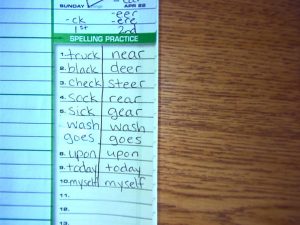 SUNDAY APR 22
-eer
-ck -ere
1st 2nd
SPELLING PRACTICE
1. truck near
2. black deer
3. check steer
4. sock rear
5. sick gear
wash wash
goes goes
8. upon upon
9. today today
10. myself myself
11.
12.
13.